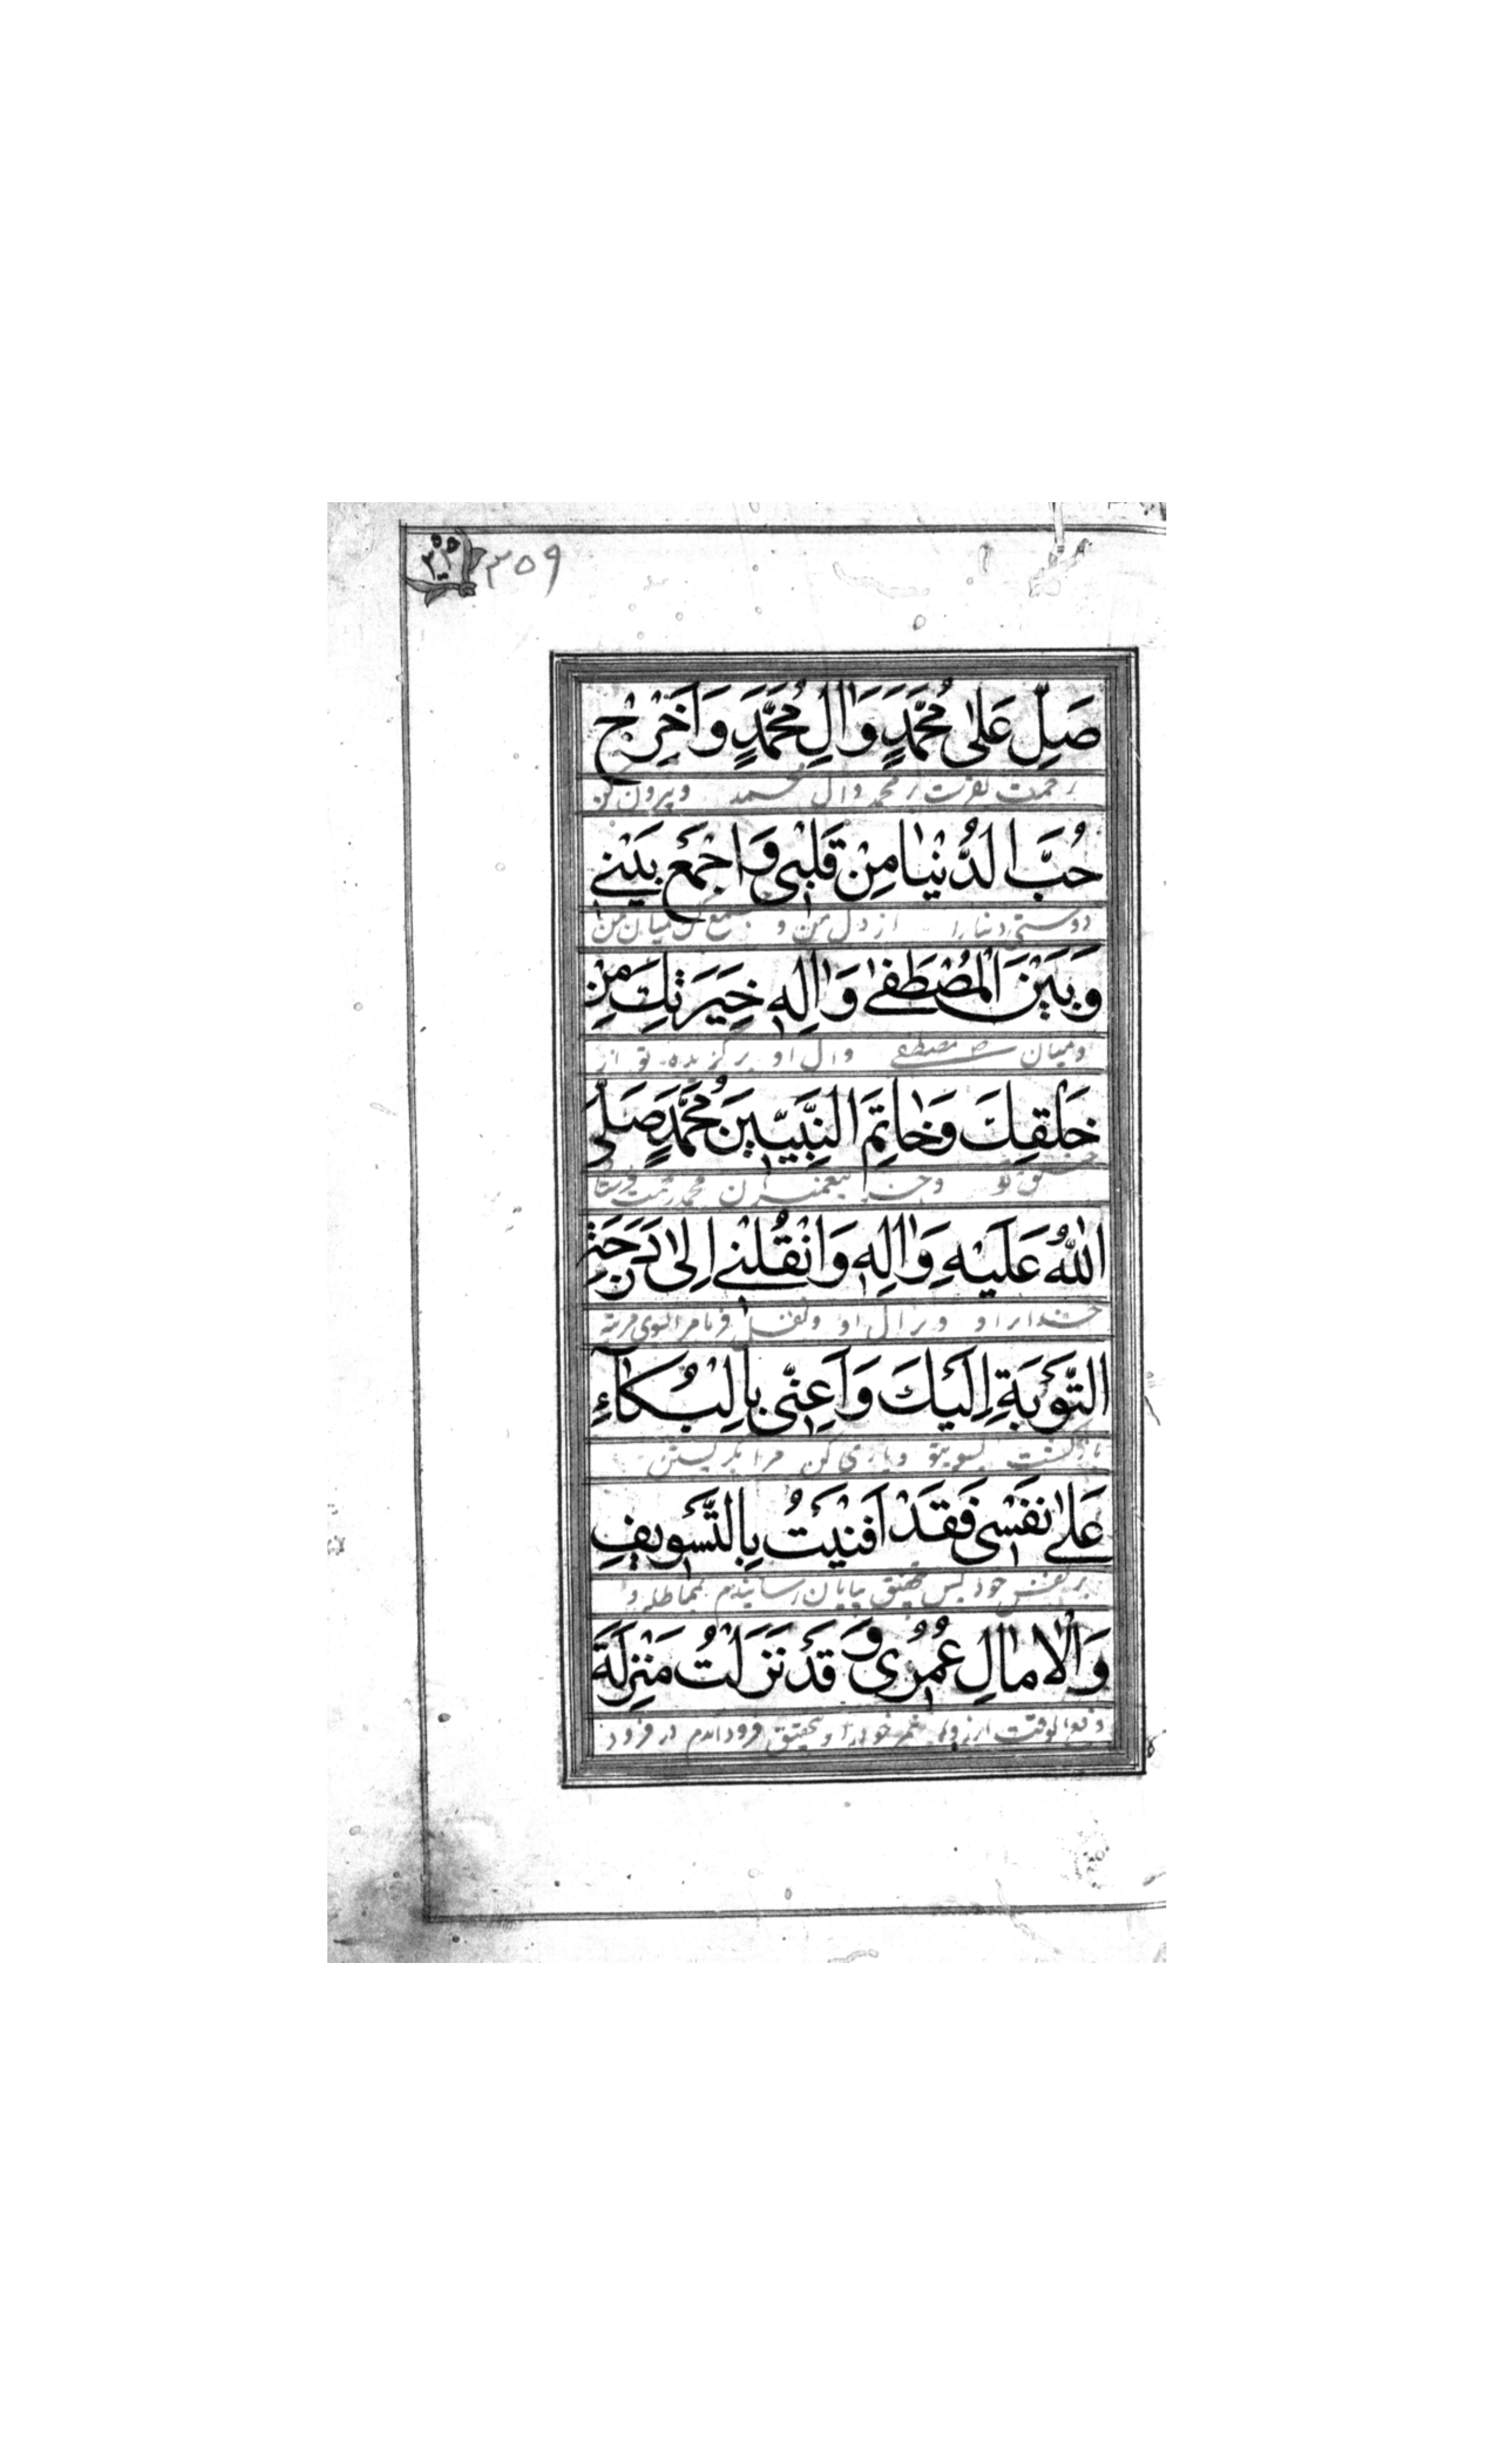 ۳۵۹
صَلِّ عَلىٰ مُحَمَّدٍ وَاٰلِ مُحَمَّدٍ وَاَخْرِجْ
رحمت بفرست بر محمد و ال محمد و بیرون کن
حُبَّ الدُّنْيٰا مِنْ قَلْبى وَاجْمَعْ بَيْنى
دوستی دنیا را از دل من و جمع کن میان من
وَبَيْنَ الْمُصْطَفىٰ وَاٰلِهِ خِيَرَتِكَ مِنْ
و میان مصطفی و ال او برگزیده تو از
خَلْقِكَ وَخٰاتَمِ النَّبِيّينَ مُحَمَّدٍ صَلَّى
خلق تو و پیغمبران محمد رحمت فرستد
اللّٰهُ عَلَيْهِ وَاٰلِهِ وَانْقُلْنى اِلىٰ دَرَجَةِ
خدا بر او و بر ال او و نقل فرما مرا بسوی مرتبه
التَّوْبَةِ اِلَيْكَ وَاَعِنّى بِالْبُكٰاۤءِ
بازگشت بسوی تو و یاری کن مرا بگریستن
عَلىٰ نَفْسى فَقَدْ اَفْنَيْتُ بِالتَّسْويفِ
بر نفس خود پس بتحقیق بپایان رسانیدم بمماطله و
وَالْاٰمٰالِ عُمُرى وَقَدْ نَزَلْتُ مَنْزِلَةَ
دفع الوقت ارزوها عمر خود را و بتحقیق فرود امدم در فرود